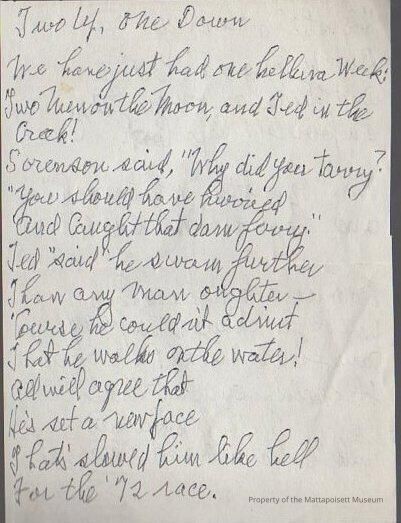 Two Up, One Down
We have just had one helluva Week:
Two Men on the Moon, and Ted in the
Creek!
Sorenson said, "Why did you tarry?
"You should have hurried
and Caught that darn ferry."
Ted "said" he swam further
Than any man oughter –
'Course he could n't admit
That he walks on the water!
All will agree that
He's set a new pace
That's slowed him like hell
For the '72 race.
Property of the Mattapoisett Museum